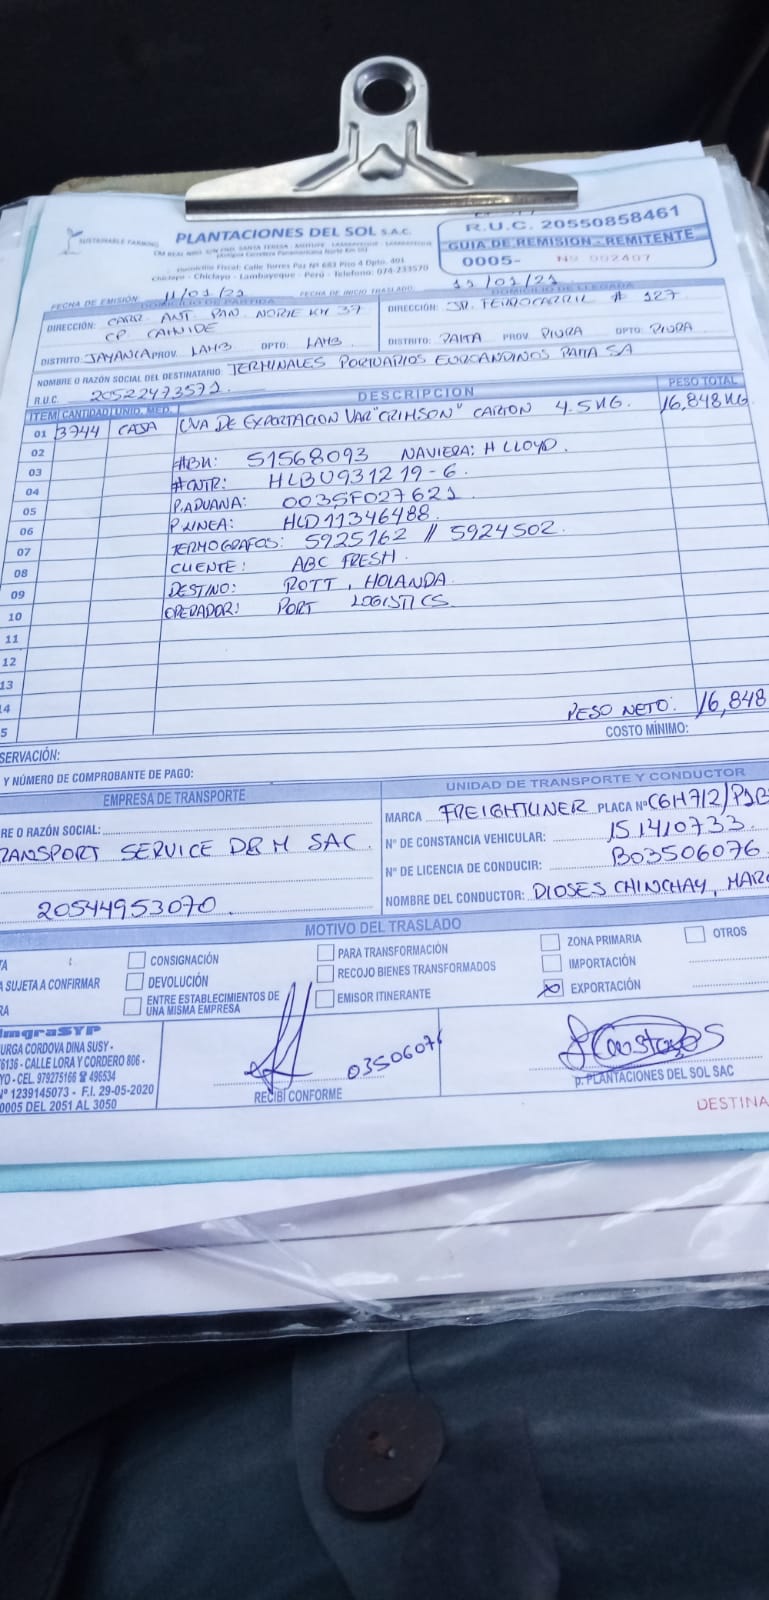 SUSTAINABLE FARMING
PLANTACIONES DEL SOL S.A.C.
Domicilio Fiscal: Calle Torres Paz Nº 683 Piso 4 Dpto. 401
Chiclayo - Chiclayo - Lambayeque - Perú - Telefono: 074-233570
R.U.C. 20550858461
GUIA DE REMISION - REMITENTE
0005- Nº 002407
FECHA DE EMISIÓN 11/01/21 FECHA DE INICIO TRASLADO: 11/01/21
DOMICILIO DE PARTIDA DOMICILIO DE LLEGADA
DIRECCIÓN: CARR. ANT. PAN. NORTE KM 37
CP.
DIRECCIÓN: JR. FERROCARRIL # 127
DISTRITO: JAYANCA PROV. LAMB DPTO: LAMB
DISTRITO: PAITA PROV. PIURA DPTO: PIURA
NOMBRE O RAZÓN SOCIAL DEL DESTINATARIO TERMINALES PORTUARIOS EUROANDINOS PAITA SA
R.U.C. 20522473571.
ITEM CANTIDAD UNID. MED. DESCRIPCION PESO TOTAL
01 3744 CAJA UVA DE EXPORTACION VAR "CRIMSON" CARTON 4.5KG. 16,848KG
02
03 #BK: 51568093 NAVIERA: H LLOYD.
04 #CNTR: HLBU931219-6.
05 P.ADUANA: 0035F027621
06 P.LINEA: HLD11346488.
07 TERMOGRAFOS: 5925162 // 5924502.
08 CLIENTE: ABC FRESH.
09 DESTINO: ROTT, HOLANDA
10 OPERADOR: PORT LOGISTICS
11
12
13
4
5
PESO NETO: 16,848
COSTO MÍNIMO:
SERVACIÓN:
Y NÚMERO DE COMPROBANTE DE PAGO:
EMPRESA DE TRANSPORTE
RE O RAZÓN SOCIAL:
RANSPORT SERVICE D&M SAC
20544953070.
UNIDAD DE TRANSPORTE Y CONDUCTOR
MARCA FREIGHTLINER PLACA Nº C6H712/
Nº DE CONSTANCIA VEHICULAR: 151410733.
Nº DE LICENCIA DE CONDUCIR: B03506076
NOMBRE DEL CONDUCTOR: DIOSES CHINCHAY, MARC
MOTIVO DEL TRASLADO
TA CONSIGNACIÓN PARA TRANSFORMACIÓN ZONA PRIMARIA OTROS
A SUJETA A CONFIRMAR DEVOLUCIÓN RECOJO BIENES TRANSFORMADOS IMPORTACIÓN
RA ENTRE ESTABLECIMIENTOS DE UNA MISMA EMPRESA EMISOR ITINERANTE X EXPORTACIÓN
ImgraSYP
URGA CORDOVA DINA SUSY -
6136 - CALLE LORA Y CORDERO 806 -
YO - CEL. 979275166 ☎ 498534
Nº 1239145073 - F.I. 29-05-2020
0005 DEL 2051 AL 3050
03506076
RECIBÍ CONFORME
p. PLANTACIONES DEL SOL SAC
DESTINA